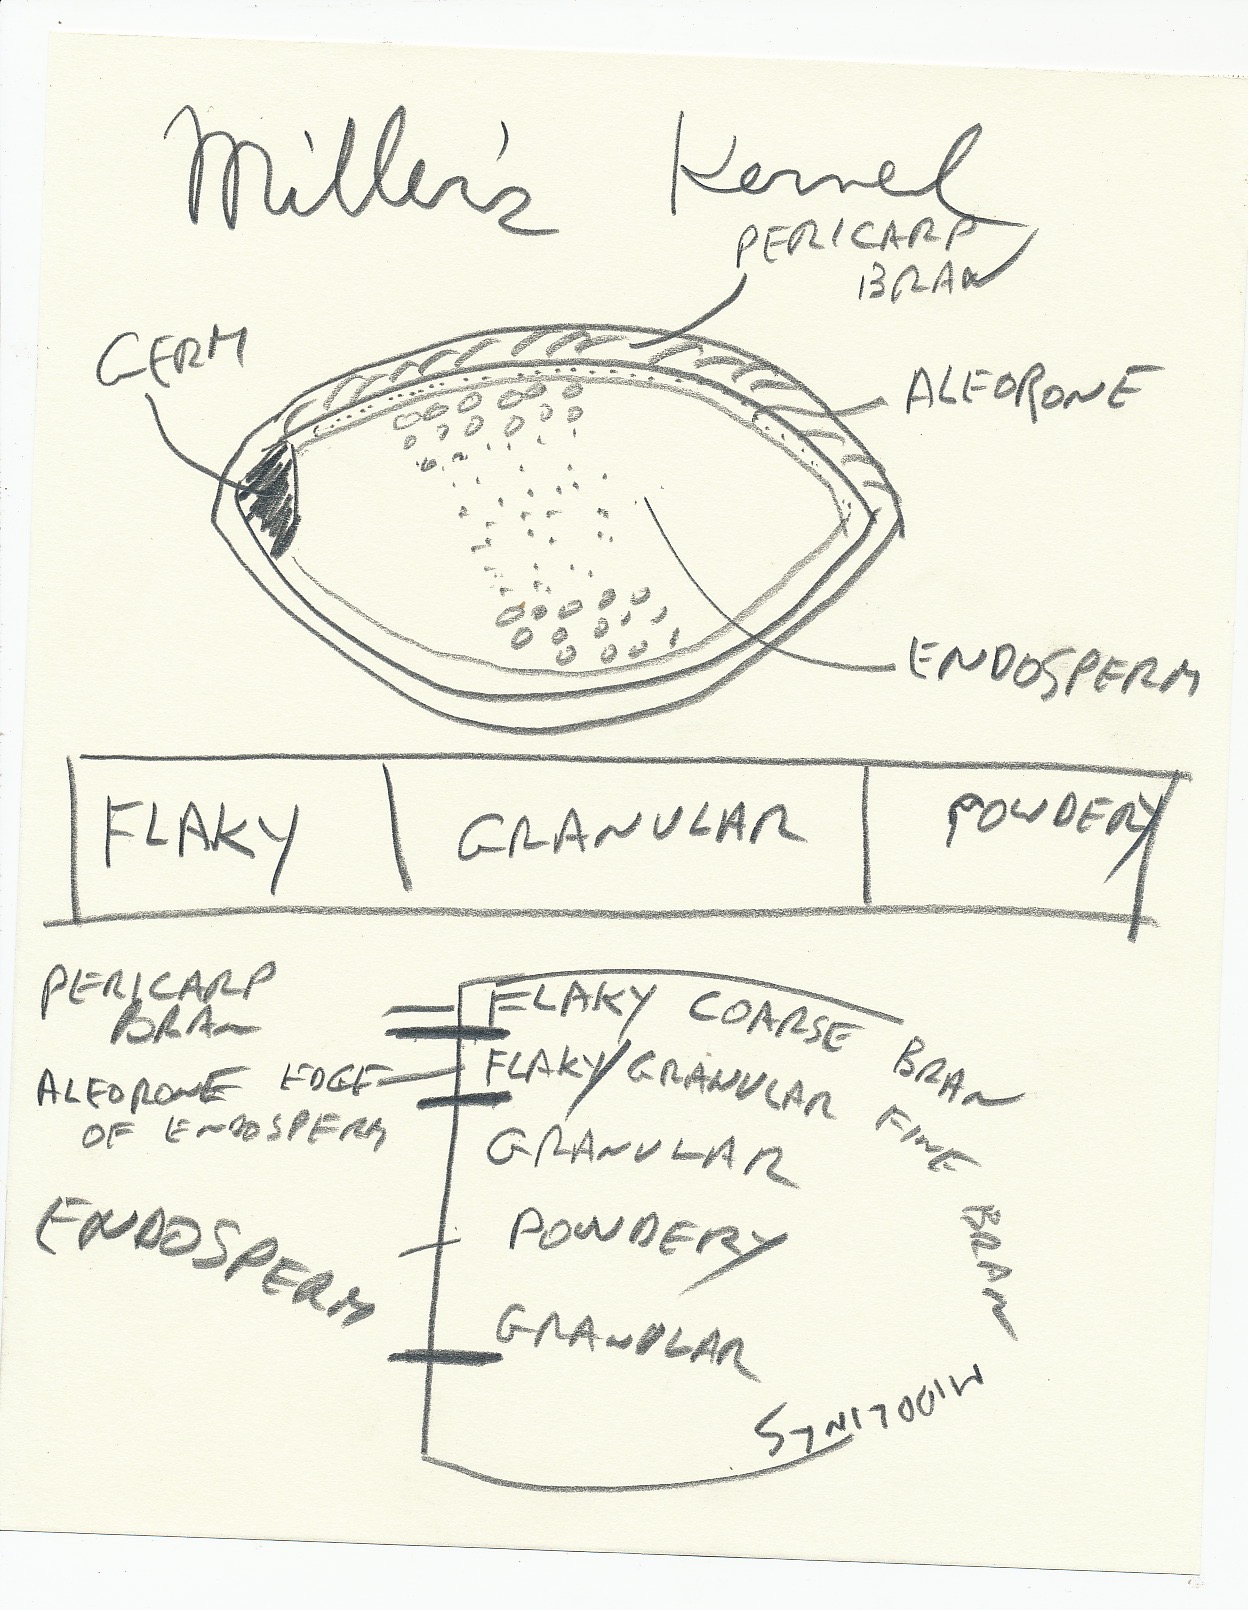 Miller's Kernel
PERICARP
BRAN
GERM
ALEORONE
ENDOSPERM
FLAKY GRANULAR POWDERY
PERICARP
BRAN
ALEORONE EDGE
OF ENDOSPERM
ENDOSPERM
FLAKY COARSE BRAN
FLAKY/GRANULAR FINE BRAN
GRANULAR
POWDERY
GRANULAR
MIDDLINGS